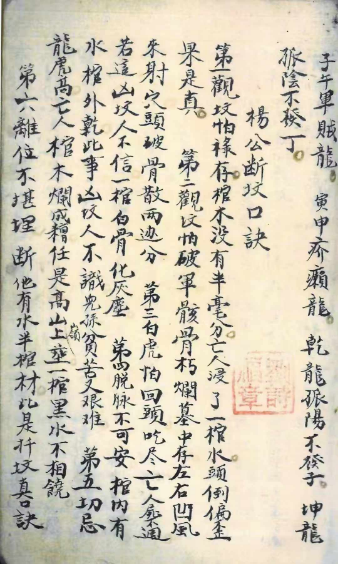 子午單賊龍 寅申疥癩龍 乾龍孤陽不發子 坤龍
孤陰不發丁
楊公断坟口訣
第一觀坟怕祿存棺木没有半毫分亡人浸了一棺水頭倒偏歪
果是真 第二觀坟怕破軍骸骨朽爛墓中存左右凹風
來射穴頭破骨散兩边分 第三白虎怕回頭吃尽亡人
若這凶坟人不信一棺白骨化灰塵 第四脱脉不可安棺内有
水棺外乾此事凶坟人不識児孫貧苦又艰难 第五切忌
龍虎高亡人棺木爛成糟任是高山上嶺一棺黑水不相饒
第六離位不堪埋断他有水半棺材此是扦坟真口訣